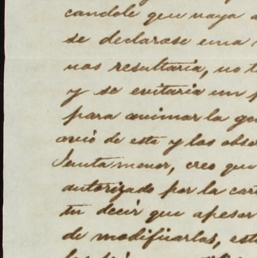 candole que vaya a
se declarase una
nos resultaria, no t
y se evitaria un p
para animar la ge
orió de esta y las obse
Junta menor, creo que
autorizado por la cort
tu decir que apesar
de modificarlas, est